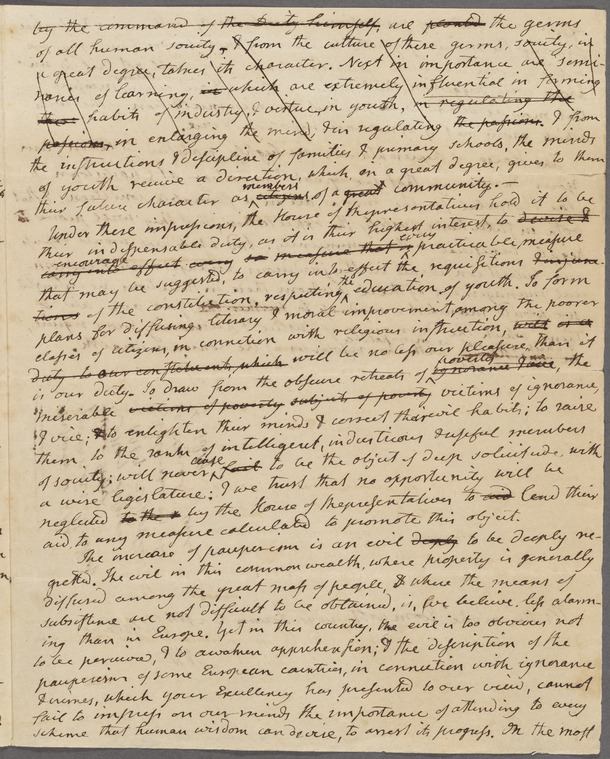 by the command of the Deity himself, are the germs
of all human society. & from the culture of these germs, society, in
a great degree, takes its character. Next in importance are Semi-
naries of learning, which are extremely influential in forming
habits of industry, & virtue, in youth, in regulating the
passions, in enlarging the mind, & in regulating the passions. & from
the instructions & discipline of families & primary schools, the minds
of youth receive a direction, which, in a great degree, gives to them
their future character as members citizens, of a great community.—
Under these impressions, the House of Representatives hold it to be
their indispensable duty, as it is their highest interest, to devise &
encourage carry into effect every practicable measure
that may be suggested, to carry into effect the requisitions
of the constitution, respecting the education of youth. To form
plans for diffusing literary & moral improvement, among the poorer
classes of citizens, in connection with religious instruction,
duty to our constituents, which will be no less our pleasure, than it
is our duty. To draw from the obscure retreats of poverty ignorance & vice, the
miserable victims of poverty subjects of victims of ignorance,
& vice; & to enlighten their minds & correct their evil habits; to raise
them to the ranks of intelligent, industrious & useful members
of society; will never cease fail to be the object of deep solicitude with
a wise legislature: & we trust that no opportunity will be
neglected to the by the House of Representatives to aid lend their
aid to any measure calculated to promote this object.
The increase of pauperism is an evil deeply to be deeply re-
gretted. The evil in this commonwealth, where property is generally
diffused among the great mass of people, & where the means of
subsistence are not difficult to be obtained, is, we believe, less alarm-
ing than in Europe. Yet in this country, the evil is too obvious not
to be perceived, & to awaken apprehension; & the description of the
pauperism of some European countries, in connection with ignorance
& crimes, which your Excellency has presented to our view, cannot
fail to impress on our minds the importance of attending to every
scheme that human wisdom can devise, to arrest its progress. In the most